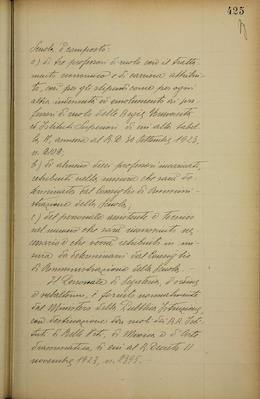 425
Scuola è composto:
a) di tre professori di ruolo con il tratta-
mento economico e di carriera attribui-
to, così per gli stipendi come per ogni
altra indennità ed emolumenti ai pro-
fessori di ruolo delle Regie Università
e Istituti Superiori di cui alla tabel-
la annessa al R.D. 30 Settembre 1923,
n. 2102;
b) di almeno dieci professori incaricati,
retribuiti nella misura che sarà de-
terminata dal Consiglio di Ammini-
strazione della Scuola;
c) del personale assistente e tecnico
nel numero che sarà riconosciuto ne-
cessario e che verrà retribuito in mi-
sura da determinarsi dal Consiglio
di Amministrazione della Scuola.
Il Personale di Segreteria, d'ordine
e subalterno, è fornito normalmente
dal Ministero della Pubblica Istruzione,
con destinazione dai ruoli dei R.R. Isti-
tuti di Belle Arti, di Musica e d'Arte
drammatica, di cui al R. Decreto 11
novembre 1923, n. 2395.